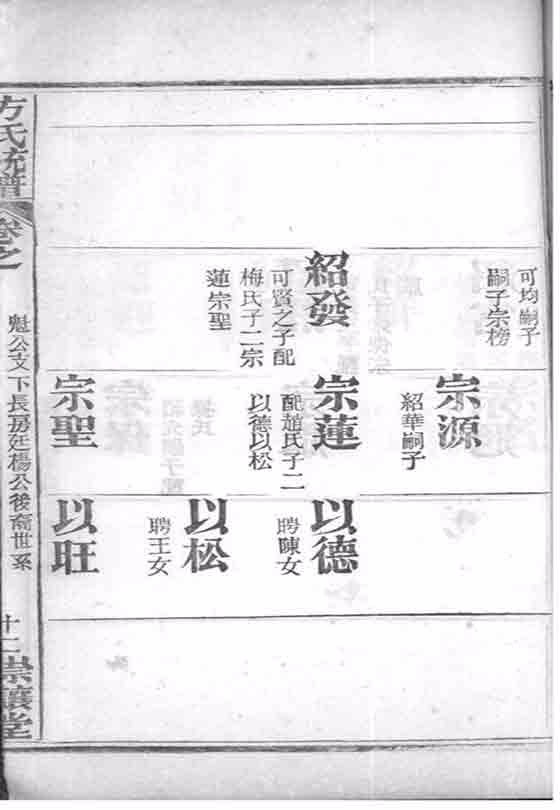 可均嗣子
嗣子宗榜
紹發
可賢之子配
梅氏子二宗
蓮宗聖
宗源
紹華嗣子
宗蓮
配趙氏子二
以德以松
宗聖
以德
聘陳女
以松
聘王女
以旺
方氏統譜
卷之
魁公支下長房廷楊公後裔世系
十二
崇讓堂